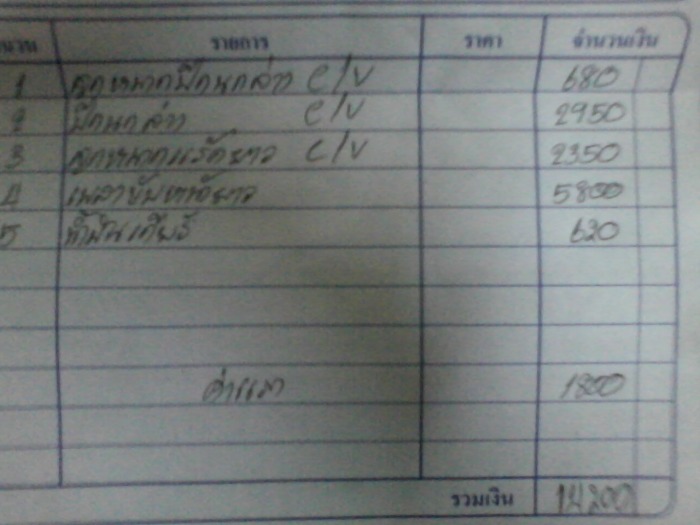 จำนวน รายการ ราคา จำนวนเงิน
1 ลูกหมากปีกนกล่าง C/V 680
2 ปีกนกล่าง C/V 2950
3 ลูกหมากแร็คยาว C/V 2350
4 5800
5 น้ำมันเกียร์ 620
ค่าแรง 1800
รวมเงิน 14200